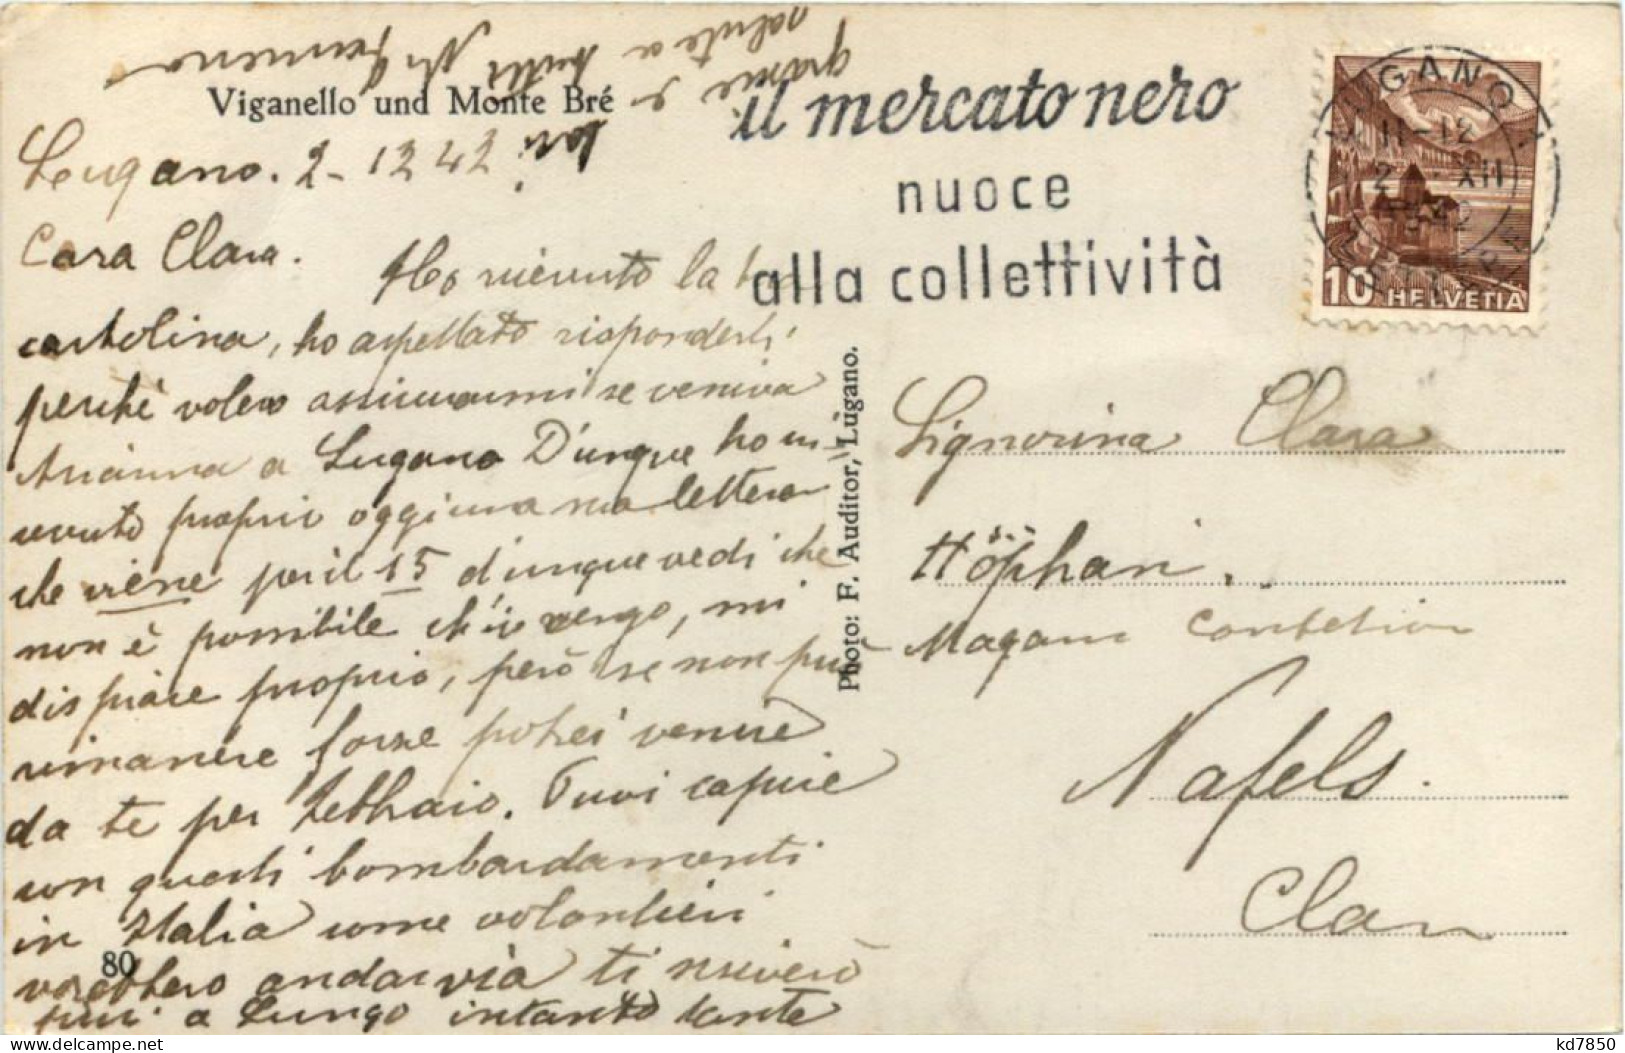 Viganello und Monte Bré
Lugano. 2-12 42
Cara Clara.
Ho ricevuto la tua
cartolina, ho aspettato risponderti
perchè volevo assicurarmi se veniva
Arianna a Lugano D'unque ho ri-
cevuto proprio oggi una sua lettera
che viene per il 15 d'unque vedi che
non è possibile ch'io vengo, mi
dispiace proprio, però se non può
rimanere forse potrei venire
da te per Febbraio. Puoi capire
con questi bombardamenti
in Italia come volontieri
vorebbero andar via ti scriverò
più a lungo intanto tante
grazie e
saluto a tutti
80
Photo: F. Auditor, Lugano.
il mercato nero
nuoce
alla collettività
LUGANO 1
11-12
2 XII
1942
LETTERE
10 HELVETIA
Signorina Clara
Höphan.
Nafels.
Clan
kd7850